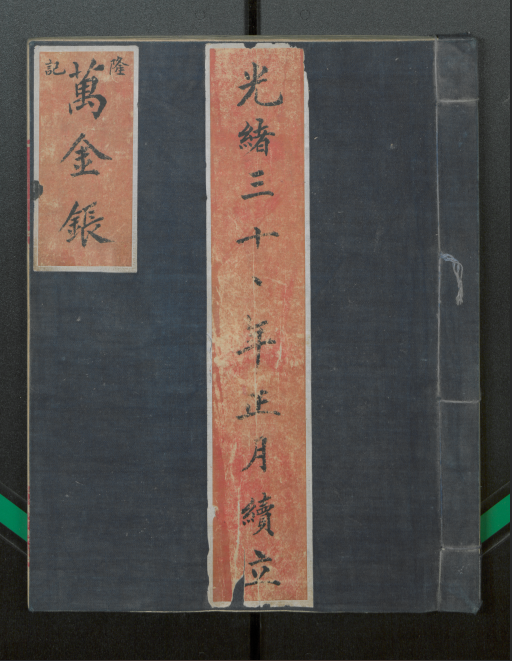 光緒三十、年正月續立
隆記
萬金鋹